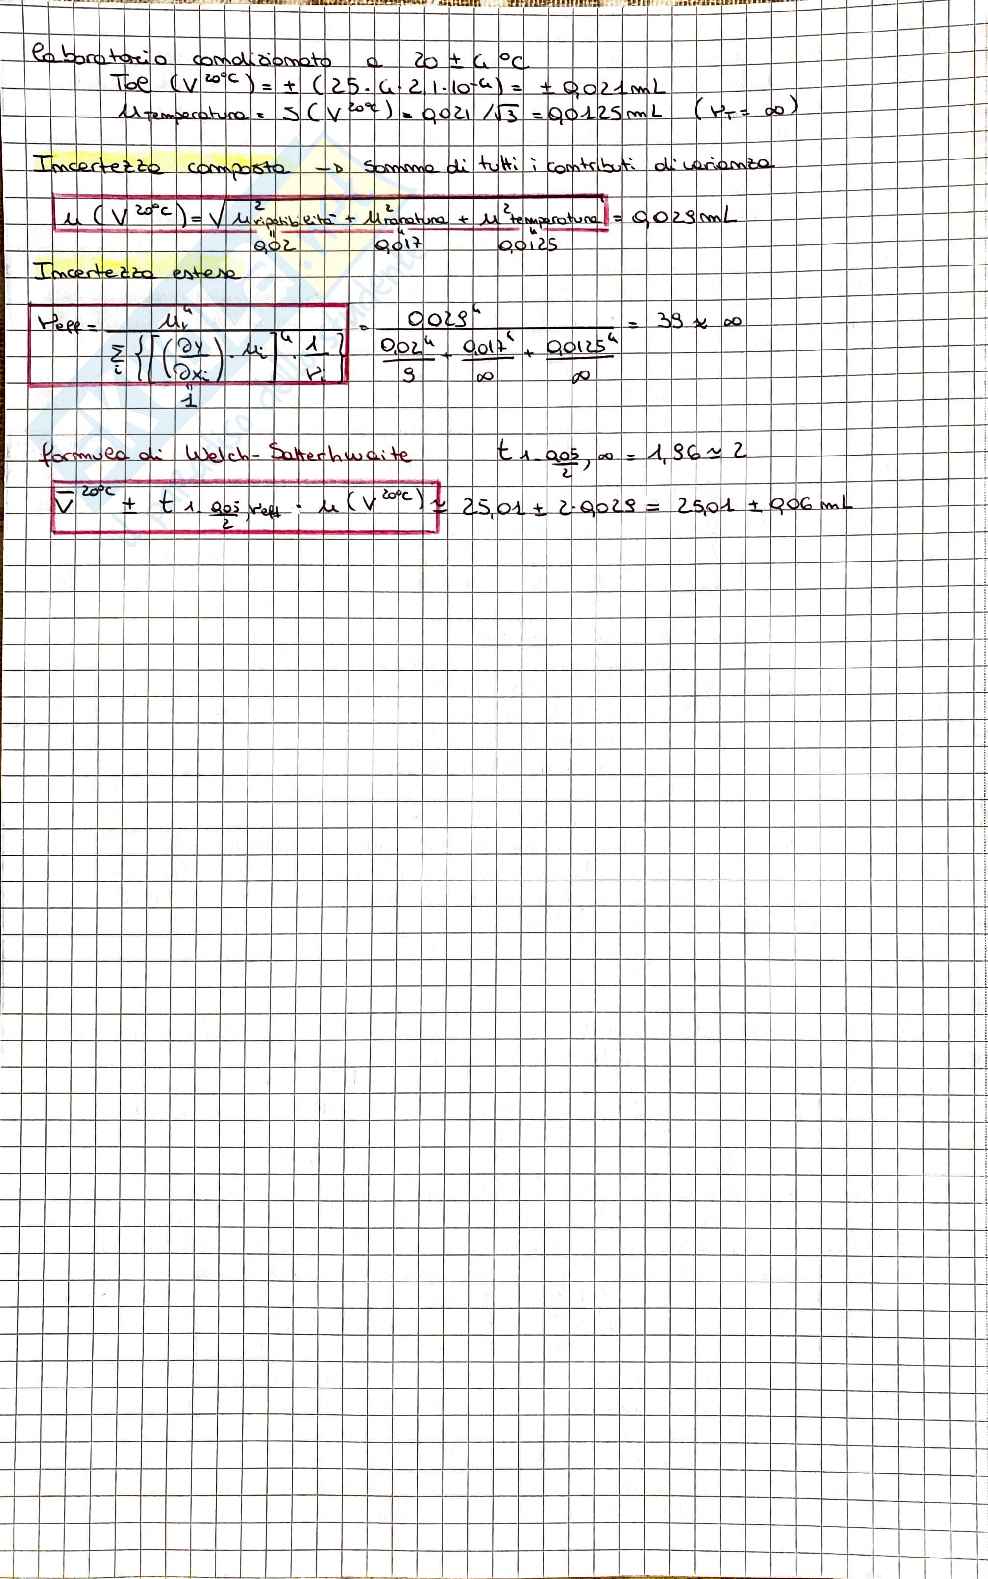 laboratorio condizionato a 20 ± 4 °C
Tol (V²⁰°ᶜ) = ± (25 · 4 · 2,1 · 10⁻⁴) = ± 0,021 mL
μtemperatura = S (V²⁰°ᶜ) = 0,021 / √3 = 0,0125 mL (νT = ∞)
Incertezza composta → somma di tutti i contributi di varianza
μ (V²⁰°ᶜ) = √ μ²ripetibilità + μ²taratura + μ²temperatura = 0,029 mL
0,02 0,017 0,0125
Incertezza estesa
νeff = μᵥ⁴ / Σi { [ (∂Y/∂xi) · μi ]⁴ · 1/νi } = 0,029⁴ / 0,02⁴/9 + 0,017⁴/∞ + 0,0125⁴/∞ = 39 ≈ ∞
1
formula di Welch-Satterhwaite t 1-0,05/2, ∞ = 1,96 ≈ 2
V̅²⁰°ᶜ ± t 1-0,05/2, νeff · μ (V²⁰°ᶜ) = 25,01 ± 2·0,029 = 25,01 ± 0,06 mL